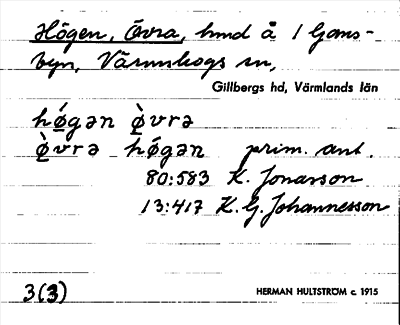 Högen, Övra, hmd å 1 Gams-
byn, Värmskogs sn,
Gillbergs hd, Värmlands län
hǿgən ø̀vrə
ø̀vrə hǿgən prim. ant.
80:583 K. Jonarson
13:417 K. G. Johannesson
3(3)
HERMAN HULTSTRÖM c. 1915